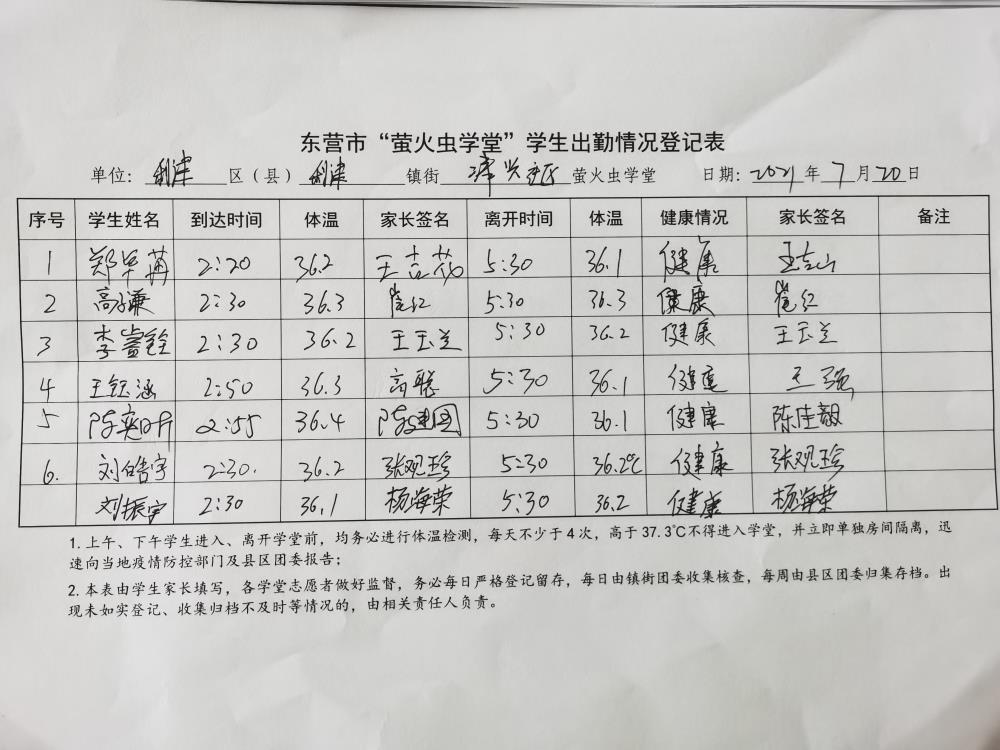 东营市“萤火虫学堂”学生出勤情况登记表
单位：利津区（县）利津镇街津兴社区萤火虫学堂 日期：2021年7月20日
序号 学生姓名 到达时间 体温 家长签名 离开时间 体温 健康情况 家长签名 备注
1 2:20 36.2 王吉花 5:30 36.1 健康 王吉山
2 高子谦 2:30 36.3 崔红 5:30 36.3 健康 崔红
3 李睿铨 2:30 36.2 王玉兰 5:30 36.2 健康 王玉兰
4 王钰涵 2:50 36.3 高聪 5:30 36.1 健康 王强
5 2:55 36.4 陈建国 5:30 36.1 健康 陈佳毅
6. 刘皓宇 2:30. 36.2 张观珍 5:30 36.2℃ 健康 张观珍
刘振宇 2:30 36.1 杨海荣 5:30 36.2 健康 杨海荣
1. 上午、下午学生进入、离开学堂前，均务必进行体温检测，每天不少于4次，高于37.3℃不得进入学堂，并立即单独房间隔离，迅
速向当地疫情防控部门及县区团委报告；
2. 本表由学生家长填写，各学堂志愿者做好监督，务必每日严格登记留存，每日由镇街团委收集核查，每周由县区团委归集存档。出
现未如实登记、收集归档不及时等情况的，由相关责任人负责。